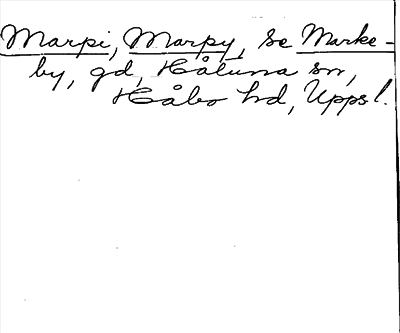 Marpi, Marpy, se Marke-
by, gd, Håtuna sn,
Håbo hd, Upps l.